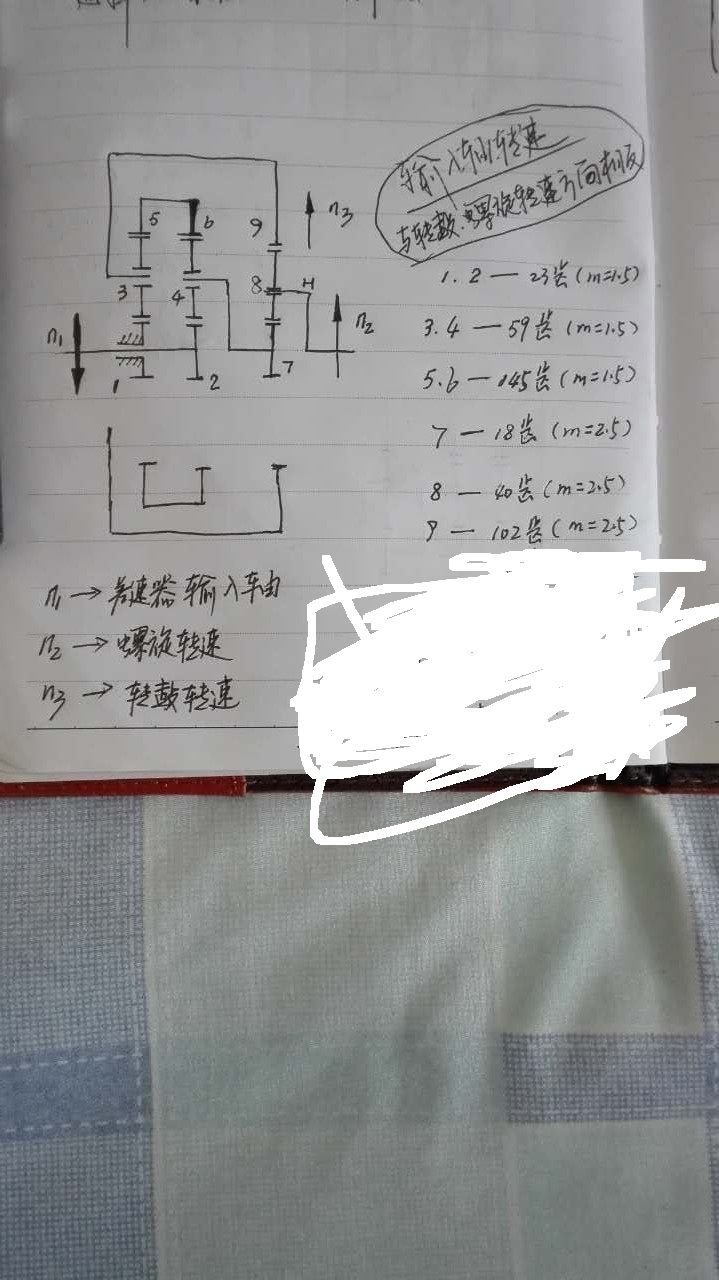 输入轴转速
与转鼓、螺旋转速方向相反
5 6 9 n3
3 4 8 H
n1 n2
1 2 7
1.2 — 23齿(m=1.5)
3.4 — 59齿(m=1.5)
5.6 — 145齿(m=1.5)
7 — 18齿(m=2.5)
8 — 40齿(m=2.5)
9 — 102齿(m=2.5)
n1 → 差速器输入轴
n2 → 螺旋转速
n3 → 转鼓转速